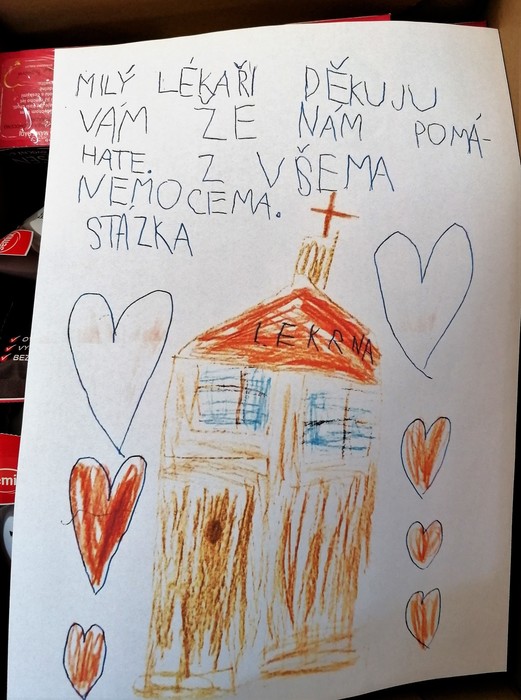 MILÝ LÉKAŘI DĚKUJU
VÁM ŽE NÁM POMÁ-
HATE. Z VŠEMA
NEMOCEMA.
STÁZKA
LEKRNA